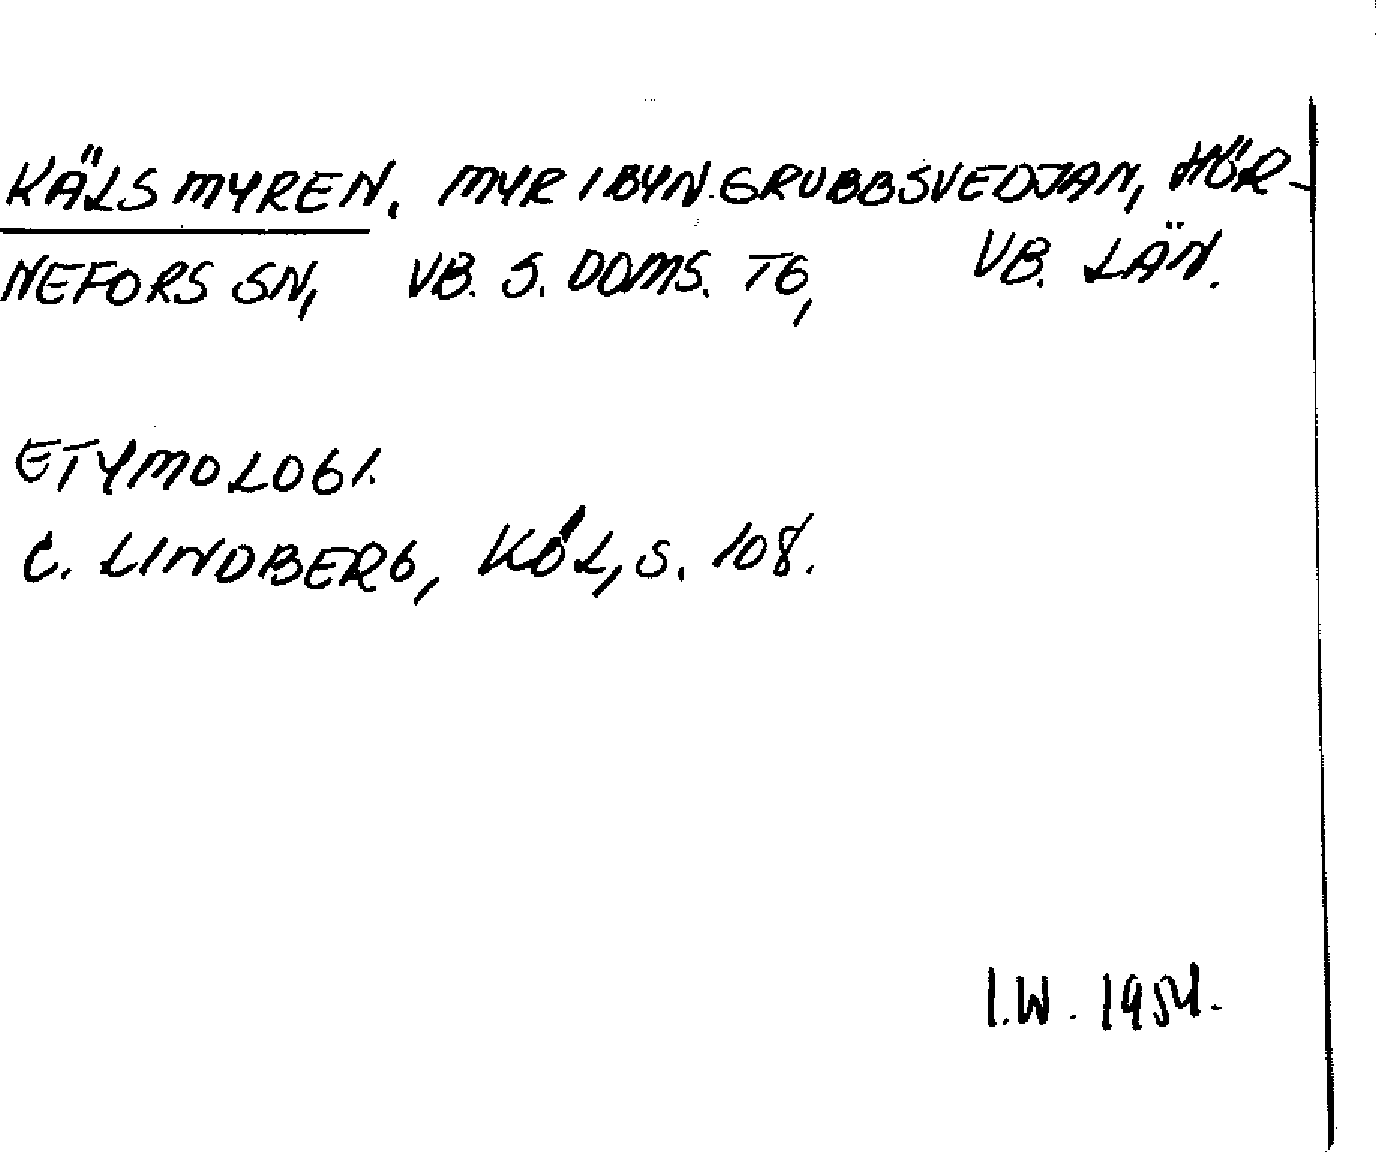 KÄLSMYREN. MYR I BYN GRUBBSVEDJAN, HÖR-
NEFORS SN, VB. S. DOMS. TG, VB. LÄN.
ETYMOLOGI.
C. LINDBERG, KÖL, S. 108.
I.W. 1954.